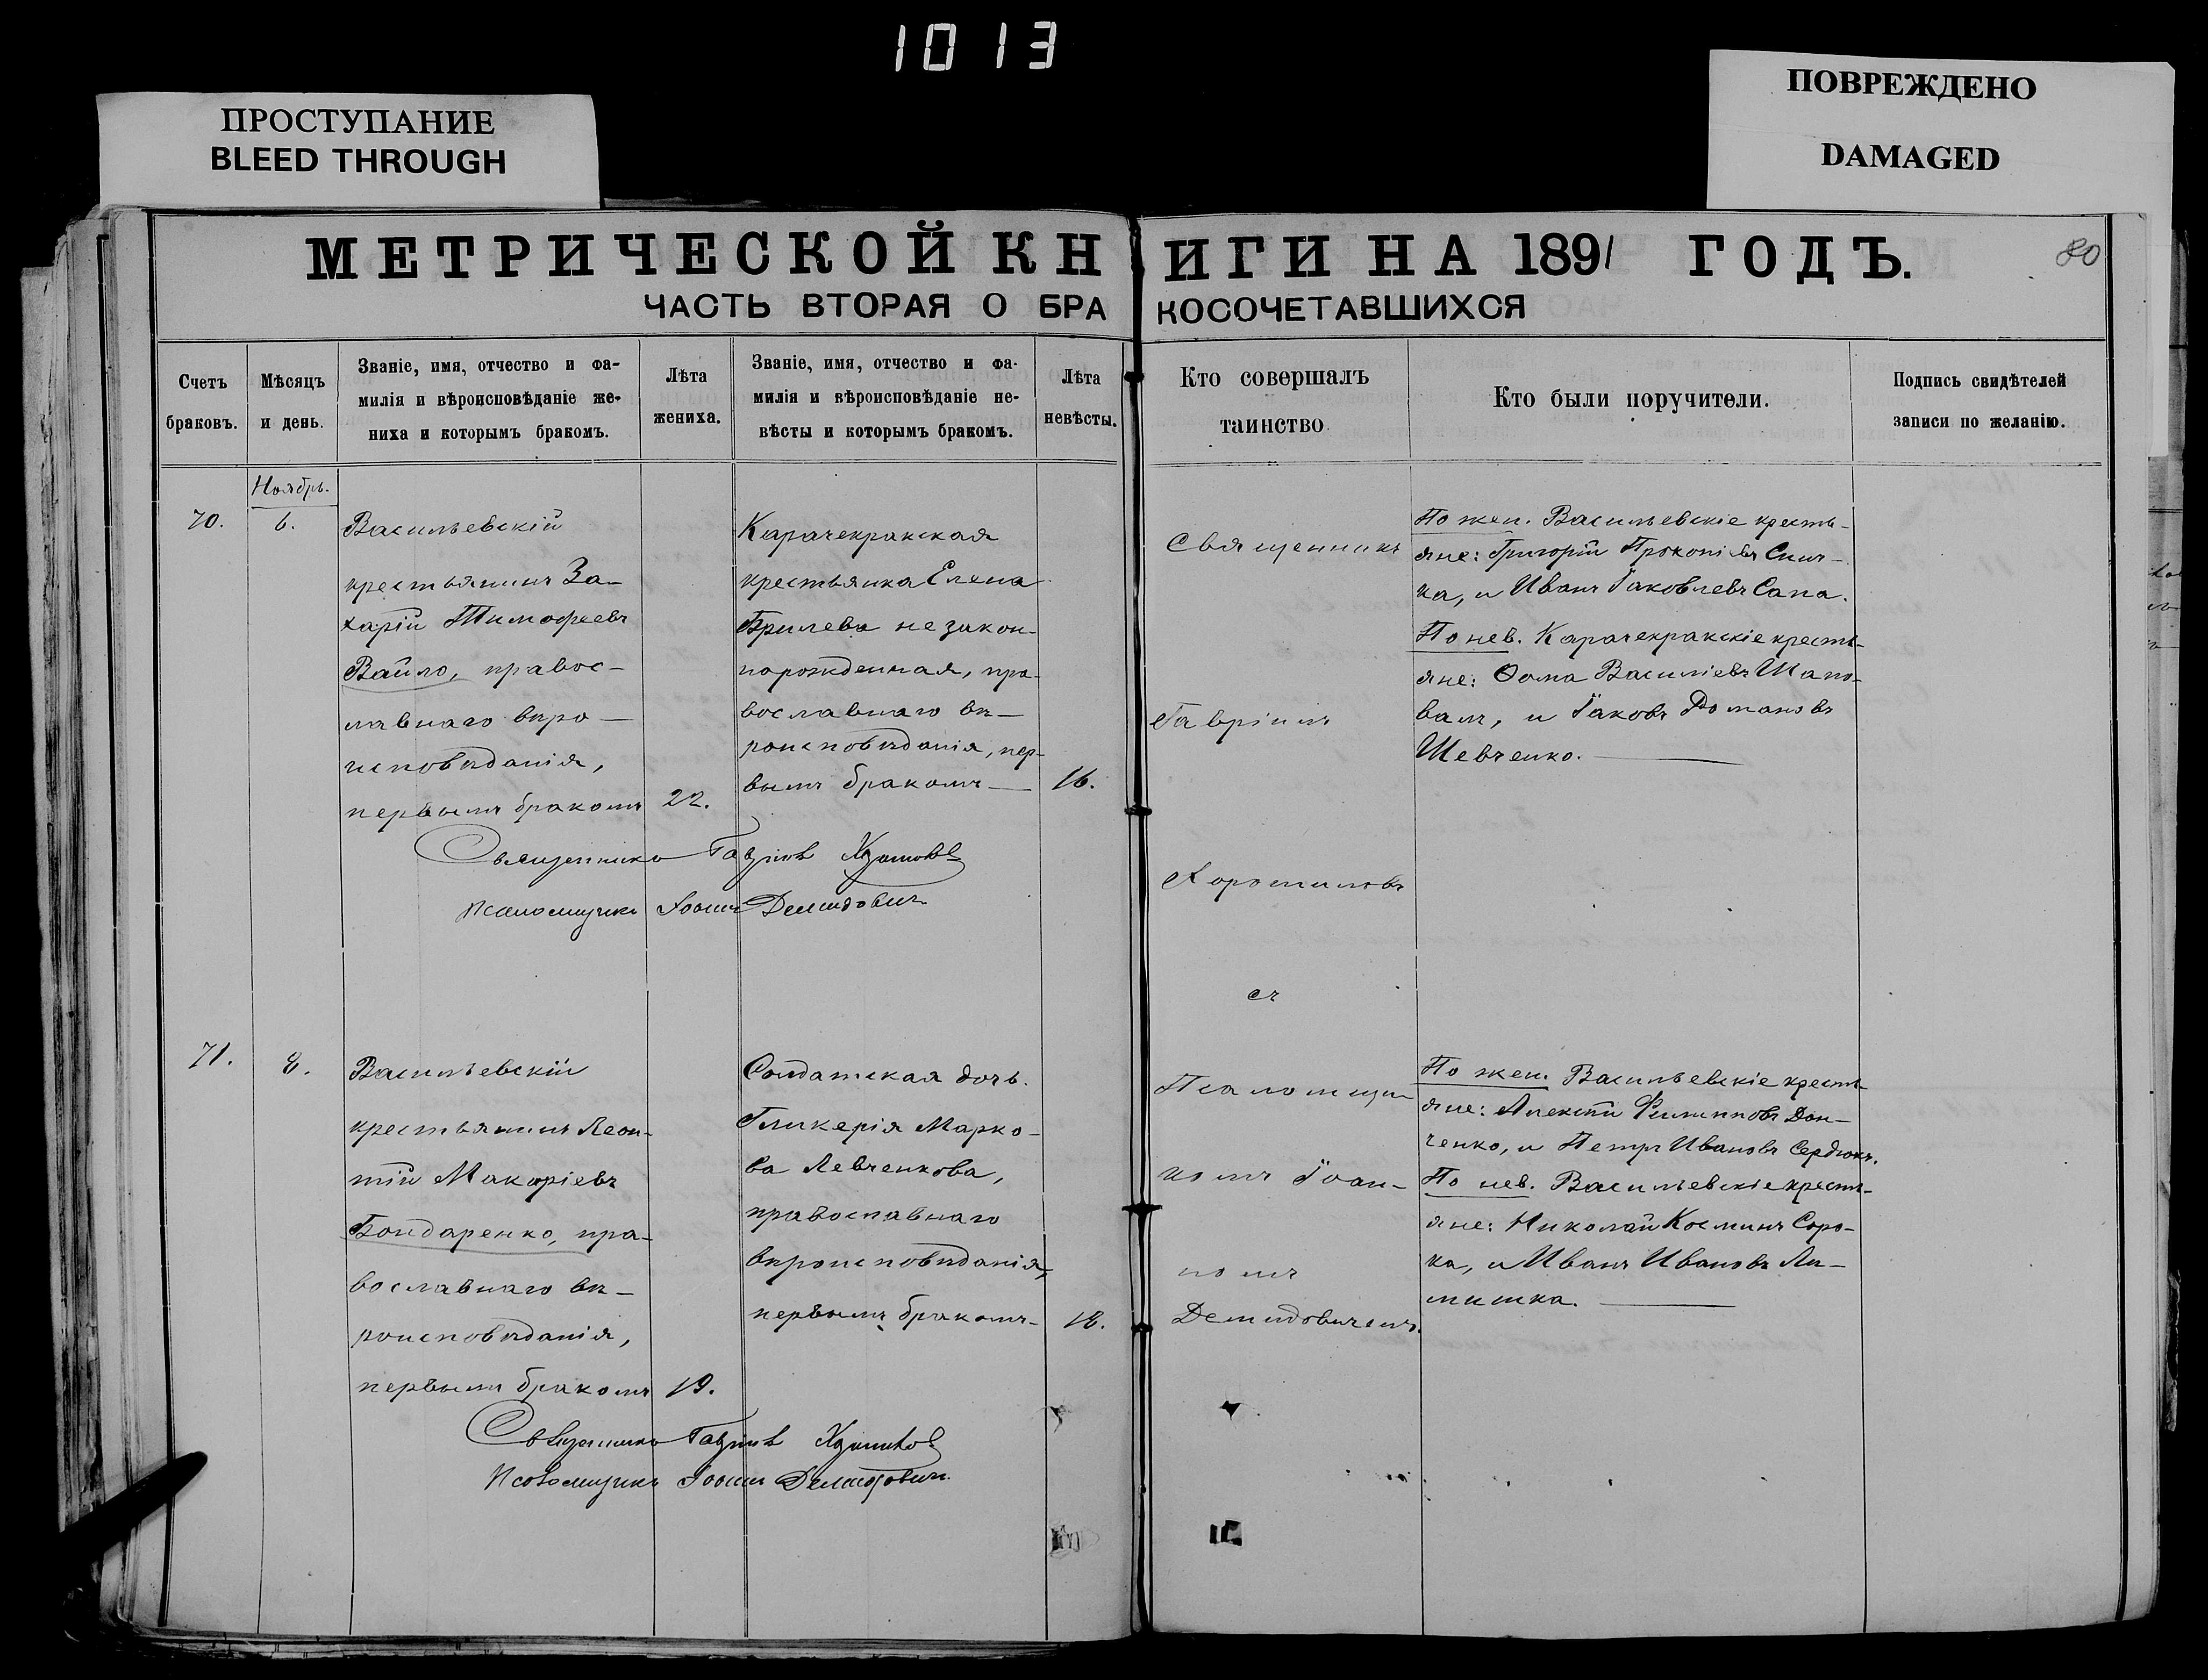 1013
ПРОСТУПАНИЕ
BLEED THROUGH
ПОВРЕЖДЕНО
DAMAGED
МЕТРИЧЕСКОЙ КНИГИ НА 1891 ГОДЪ.
80
ЧАСТЬ ВТОРАЯ О БРАКОСОЧЕТАВШИХСЯ
Счетъ
браковъ.
Мѣсяцъ
и день.
Званіе, имя, отчество и фа-
милія и вѣроисповѣданіе же-
ниха и которымъ бракомъ.
Лѣта
жениха.
Званіе, имя, отчество и фа-
милія и вѣроисповѣданіе не-
вѣсты и которымъ бракомъ.
Лѣта
невѣсты.
Кто совершалъ
таинство
Кто были поручители.
Подпись свидѣтелей
записи по желанію.
Ноябрь.
70.
6.
Васильевскій
крестьянинъ За-
харій Тимофеевъ
Вайло, правос-
лавнаго вѣро-
исповѣданія,
первымъ бракомъ
22.
Карачекракская
крестьянка Елена
Брилева незакон-
порожденная, пра-
вославнаго вѣ-
роисповѣданія, пер-
вымъ бракомъ
16.
Священникъ Гавріилъ
Псаломщикъ Іоаннъ Демидовичъ
Священникъ
Гавріилъ
съ
Псаломщи-
комъ Іоан-
номъ
Демидовичемъ.
По жен. Васильевскіе кресть-
яне: Григорій Прокопіевъ Скич-
ка, и Иванъ Іаковлевъ Сапа.
По нев. Карачекракскіе кресть-
яне: Ѳома Василіевъ Шапо-
валъ, и Іаковъ Романовъ
Шевченко.
71.
8.
Васильевскій
крестьянинъ Леон-
тій Макаріевъ
Бондаренко, пра-
вославнаго вѣ-
роисповѣданія,
первымъ бракомъ
19.
Солдатская дочь
Гликерія Марко-
ва Левченкова,
православнаго
вѣроисповѣданія,
первымъ бракомъ
18.
Священникъ Гавріилъ
Псаломщикъ Іоаннъ Демидовичъ
По жен. Васильевскіе кресть-
яне: Алексѣй Филипповъ Дон-
ченко, и Петръ Ивановъ Сердюкъ.
По нев. Васильевскіе кресть-
яне: Николай Косминъ Соро-
ка, и Иванъ Ивановъ